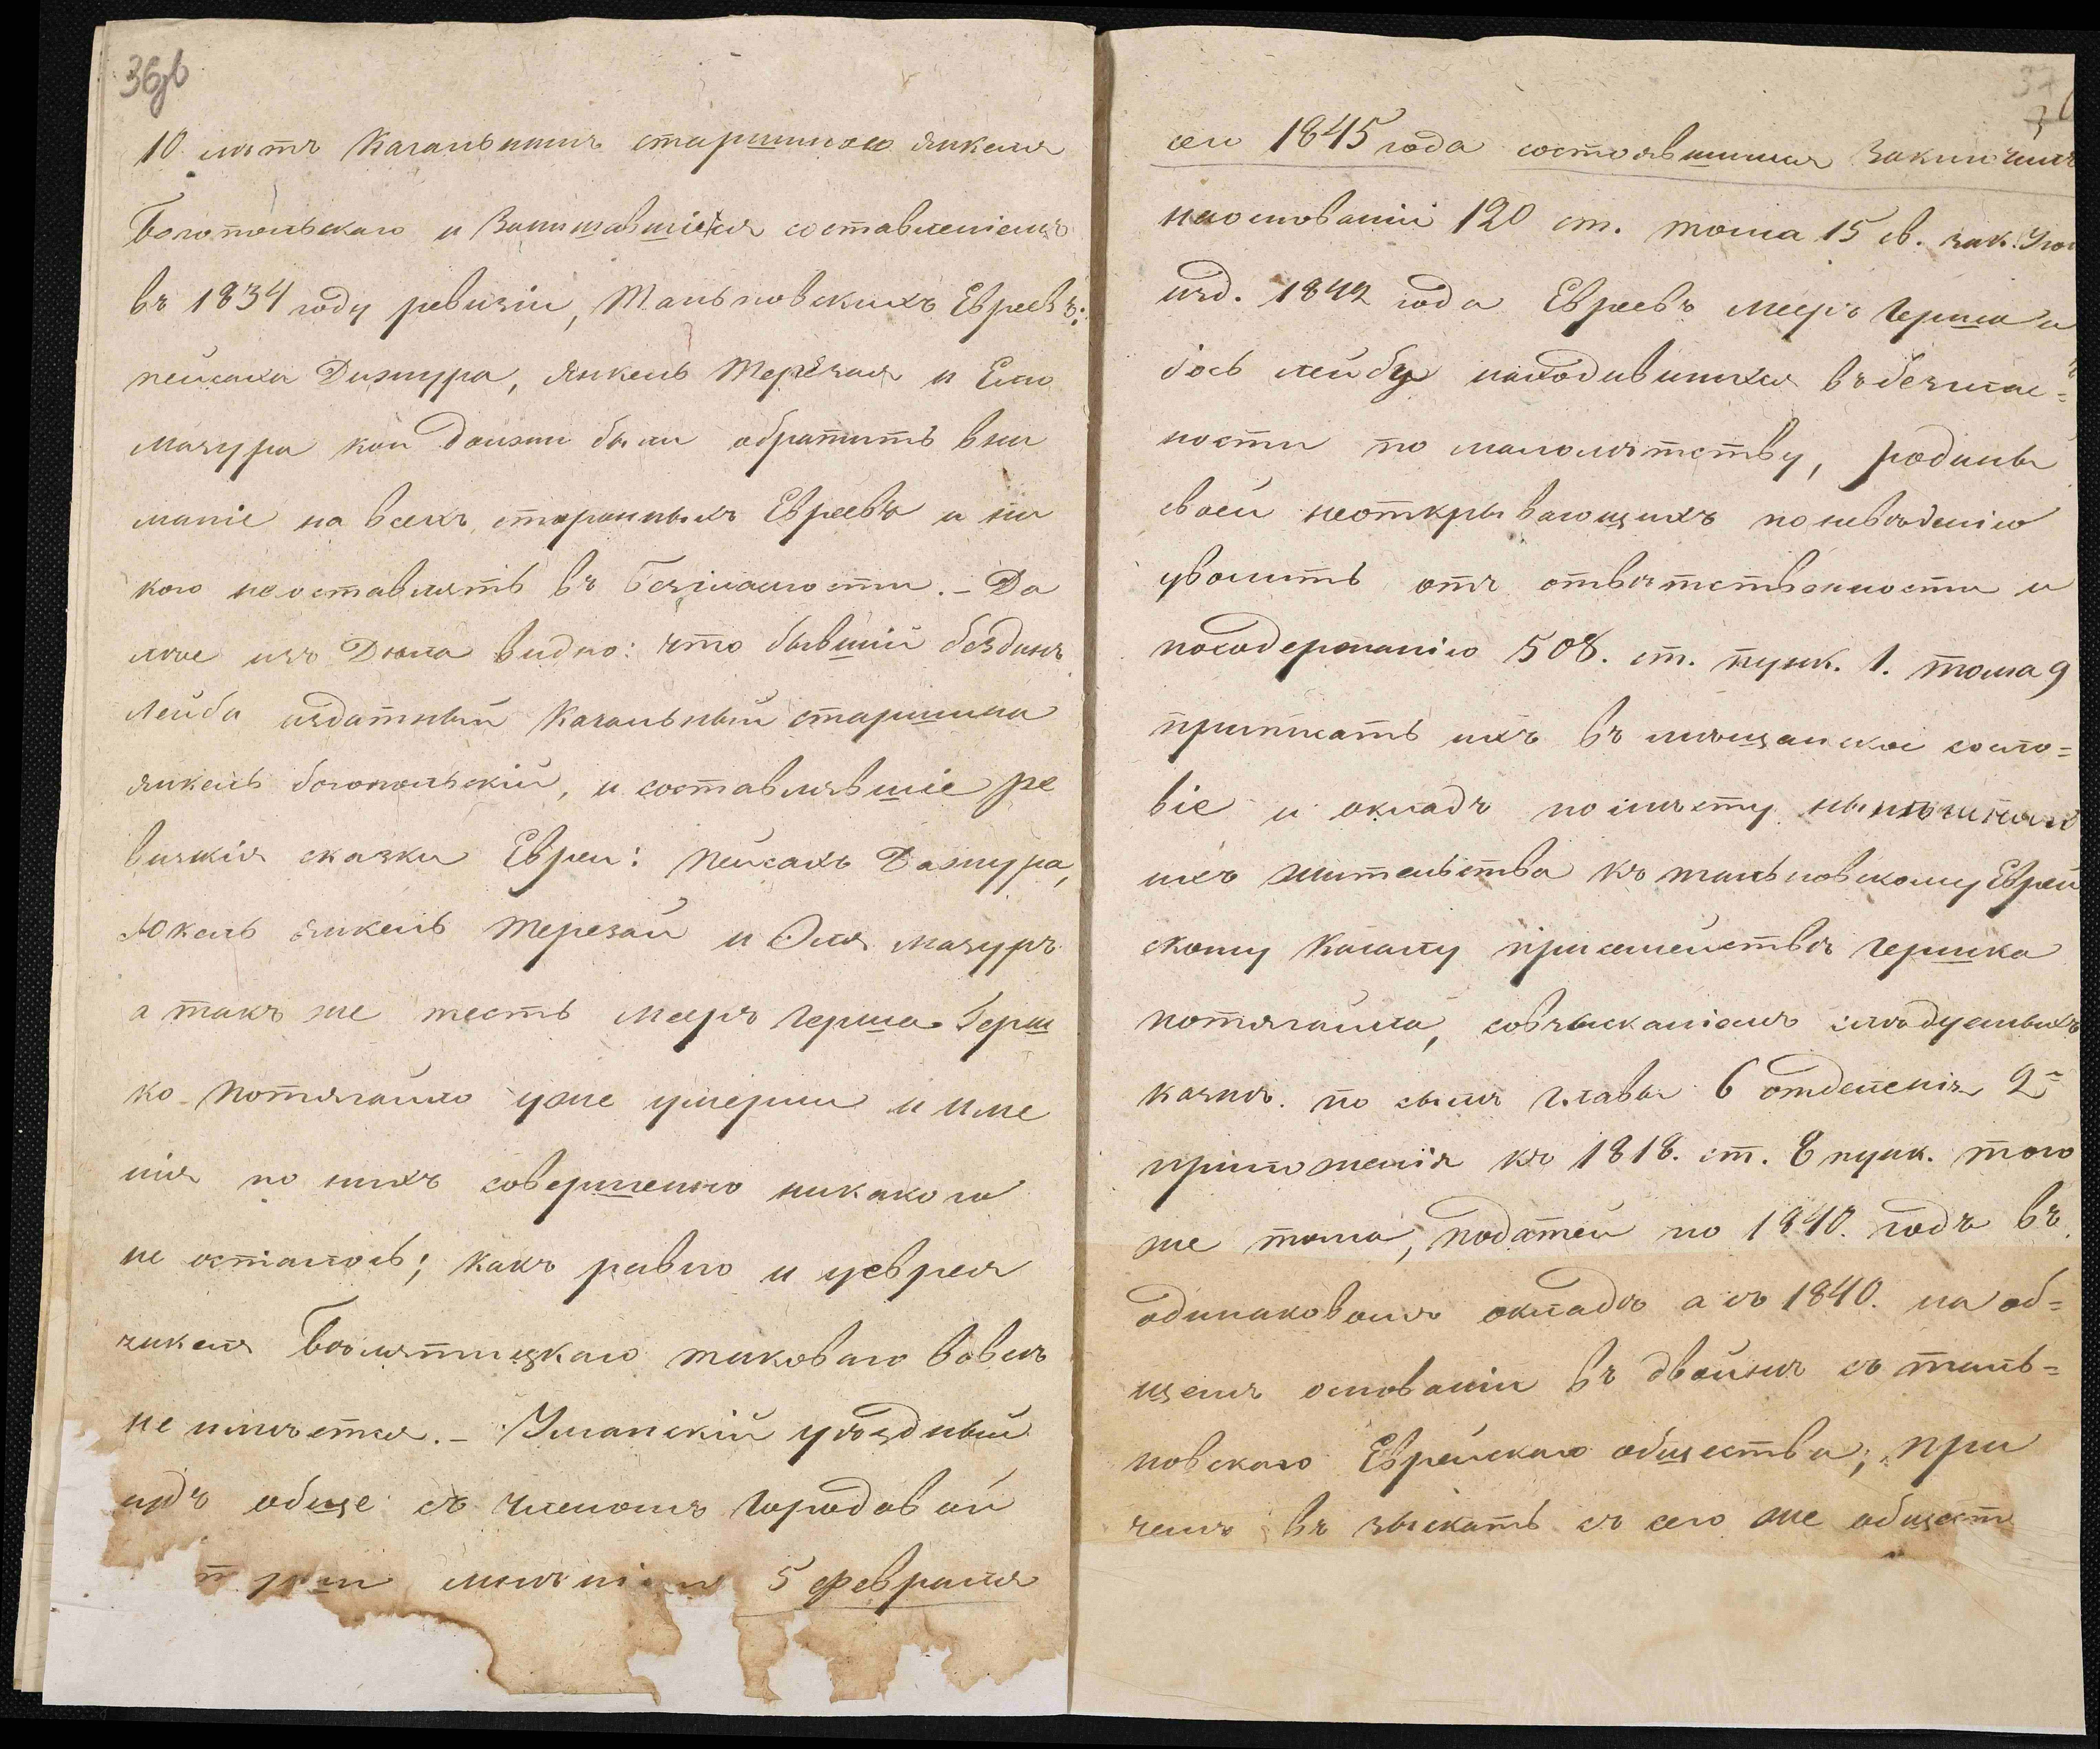 36об
10 лѣтъ Кагальнымъ старшиною Янкеля
Богопольскаго и Занимавшіеся составленіемъ
въ 1834 году ревизіи, Тальновскихъ Евреевъ:
пейсаха Дижура, Янкель Терезая и Елю
мазура кои должны были обратить вни
маніе на всехъ старонныхъ Евреевъ и ни
кого неоставлять въ Безгласности. – Да
лѣе изъ Дѣла видно: что бывшій
Лейба издатный Кагальный старшина
Янкель богопольскій, и составлявшіе ре
визкія сказки Евреи: Пейсахъ Дажура,
Юкель Янкель Терезай и Эля мазуръ
а такъ же тесть меера герша Герш
ко потягайло уже умерши и име
нія по нихъ совершенно никакого
не осталось; какъ равно и уеврея
таковаго вовсѣ
не имѣется. – Уманскій уѣздный
судъ обще съ членомъ Городовой
мнѣніемъ 5 февраля
37
сего 1845 года состоявшимся заключилъ
наоснованіи 120 ст. тома 15 св. зак. Угол
изд. 1842 года Евреевъ меера Герша и
Іось лейбу находившихся въбезглас=
ности по малолѣтству, родины
своей неоткрывающихъ поневѣденію
уволить отъ отвѣтственности и
посодержанію 508. ст. пунк. 1. тома 9
приписать ихъ въ мѣщанское сосло=
віе и окладъ по мѣсту нынѣшняго
ихъ жительства къ тальновскому Еврей
скому Кагалу присемействѣ гершка
потягайла, совзысканіемъ слѣдуемыхъ
казнѣ. по силѣ главы 6 отделенія 2
приложенія къ 1818. ст. 8 пунк. того
же тома, податей по 1840. годъ въ
одинаковомъ окладѣ а съ 1840. на об=
щемъ основаніи въ двойнѣ съ таль=
новскаго Еврейскаго общества; при
чемъ въ зыскать съ сего же общест